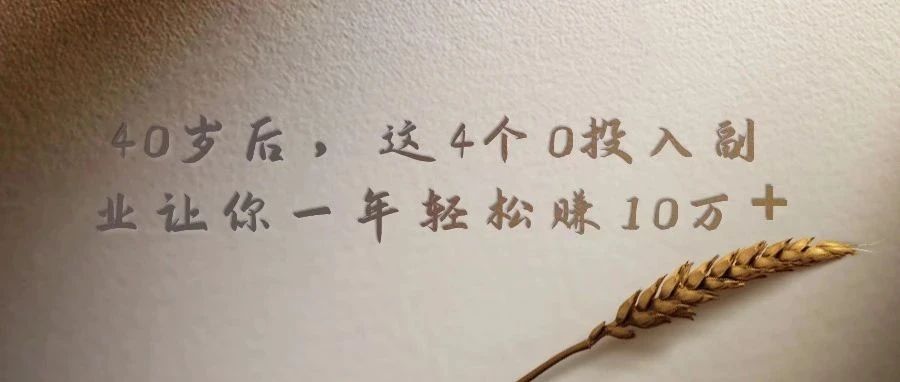 40岁后，这4个0投入副
业让你一年轻松赚10万+